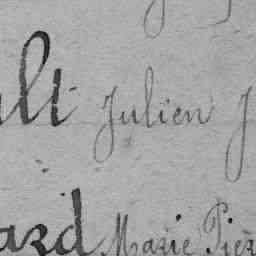 ult Julien J
ard Marie Pier